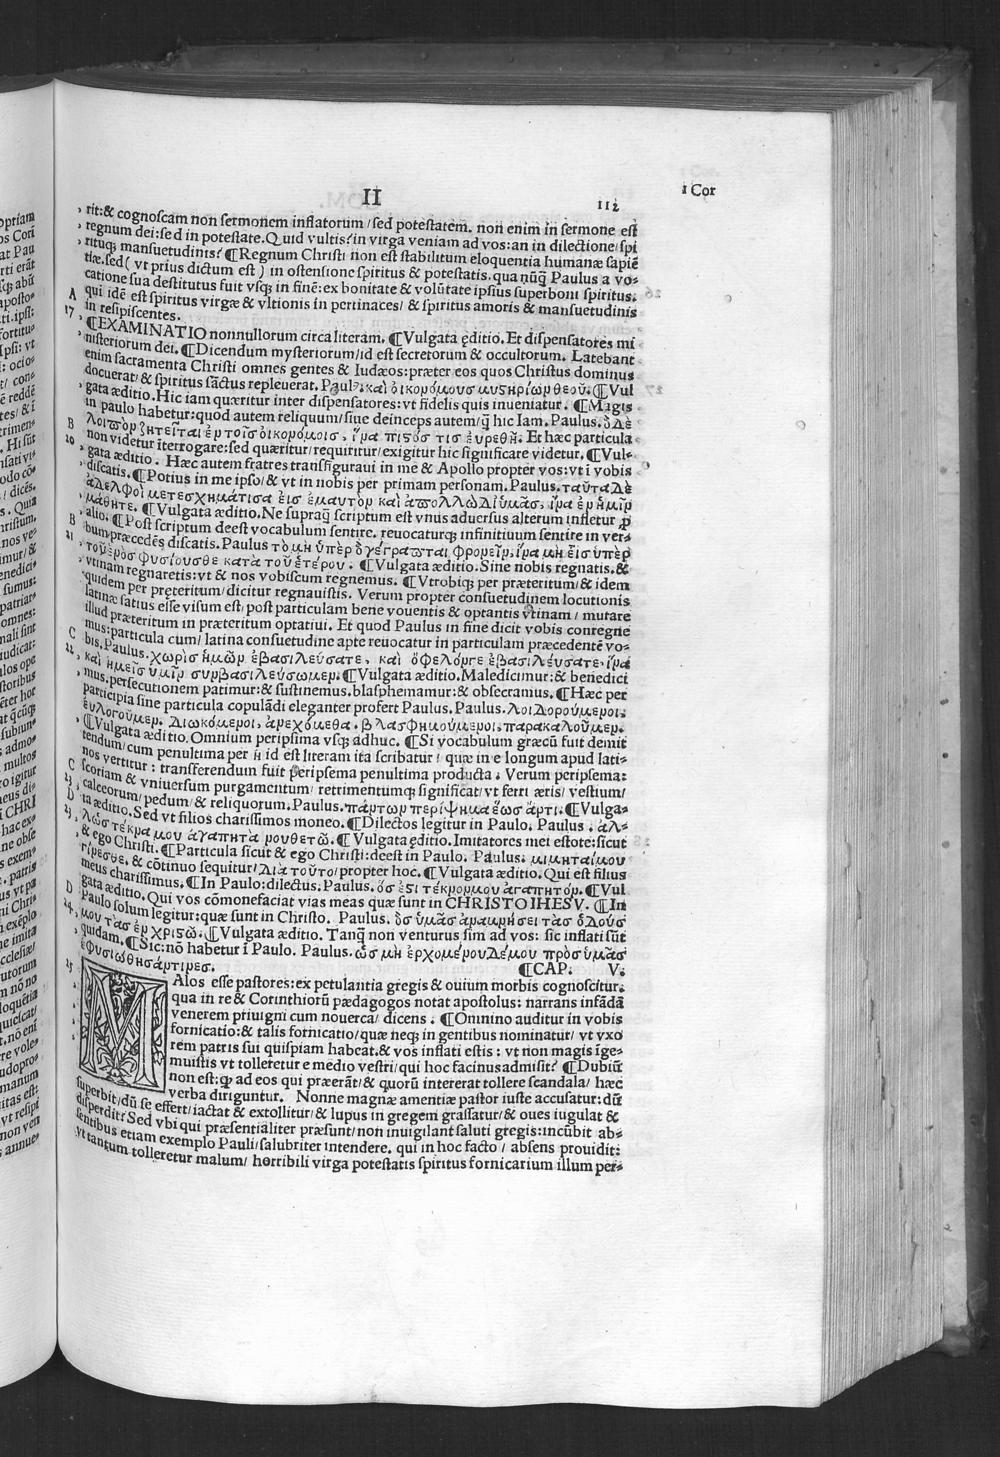 II
112
1 Cor
rit:& cognoscam non sermonem inflatorum/sed potestatem. non enim in sermone est
regnum dei:sed in potestate.Quid vultis?in virga veniam ad vos:an in dilectione/spi
rituq; mansuetudinis? ¶Regnum Christi non est stabilitum eloquentia humanæ sapiē
tiæ.sed ( vt prius dictum est ) in ostensione spiritus & potestatis.qua nūq̄ Paulus a vo-
catione sua destitutus fuit vsq; in finē:ex bonitate & volūtate ipsius superboni spiritus.
A qui idē est spiritus virgæ & vltionis in pertinaces/ & spiritus amoris & mansuetudinis
17 in resipiscentes.
¶EXAMINATIO nonnullorum circa literam. ¶Vulgata editio.Et dispensatores mi
nisteriorum dei. ¶Dicendum mysteriorum/id est secretorum & occultorum. Latebant
enim sacramenta Christi omnes gentes & Iudæos:præter eos quos Christus dominus
docuerat/& spiritus sāctus repleuerat. Paul9. καὶ ὀικονόμους μυςηρίωνθεοῦ.¶Vul
gata æditio. Hic iam quæritur inter dispensatores:vt fidelis quis inueniatur. ¶Magis
in paulo habetur:quod autem reliquum/siue deinceps autem/q̄ hic Iam. Paulus.ὃΔὲ
B λοιπὸνζητεῖται ἐντοῖσὀικονόμοισ, ἵνα πιςόσ τισ ἑυρεθῇ. Et hæc particula
20 non videtur īterrogare:sed quæritur/requiritur/exigitur hic significare videtur. ¶Vul-
gata æditio. Hæc autem fratres transfiguraui in me & Apollo propter vos:vt ī vobis
discatis. ¶Potius in me ipso/& vt in nobis per primam personam. Paulus.ταῦταΔὲ
ἀΔελφοὶ μετεσχημάτισα ἐισ ἐμαυτὸν καὶ ἀπολλὼΔἰὑμᾶσ, ἵνα ἐνἡμῖν
μάθητε. ¶Vulgata æditio.Ne supraq̄ scriptum est vnus aduersus alterum infletur p
B alio. ¶Post scriptum deest vocabulum sentire. reuocaturq; infinitiuum sentire in ver-
21 bum præcedēs discatis. Paulus τὸμὴ ὑπὲρ ὃγέγραπται φρονεῖν, ἵνα μὴ ἑῖσ ὑπὲρ
τοῦἑνὸσ φυσιοῦσθε κατὰ τοῦ ἑτέρου. ¶Vulgata æditio.Sine nobis regnatis.&
vtinam regnaretis:vt & nos vobiscum regnemus. ¶Vtrobiq; per præteritum/& idem
quidem per pręteritum/dicitur regnauistis. Verum propter consuetudinem locutionis
latinæ satius esse visum est/post particulam bene vouentis & optantis vtinam/ mutare
illud præteritum in præteritum optatiui. Et quod Paulus in fine dicit vobis conregne
C mus:particula cum/ latina consuetudine apte reuocatur in particulam præcedentē vo-
22 bis.Paulus.χωρὶσ ἡμῶν ἐβασιλεύσατε, καὶ ὄφελόνγε ἐβασιλεύσατε,ἵνα
καὶ ἡμεῖσ ὑμῖν συμβασιλεύσωμεν.¶Vulgata æditio.Maledicimur:& benedici
mus.persecutionem patimur:& sustinemus.blasphemamur:& obsecramus. ¶Hæc per
participia sine particula copulādi eleganter profert Paulus.Paulus.λοιΔορούμενοι,
ἐυλογοῦμεν. Διωκόμενοι, ἀνεχόμεθα. βλασφημούμενοι,παρακαλοῦμεν.
¶Vulgata æditio.Omnium peripsima vsq; adhuc. ¶Si vocabulum græcū fuit demit
tendum/cum penultima per ῆ id est literam ita scribatur / quæ in e longum apud lati-
nos vertitur : transferendum fuit peripsema penultima producta. Verum peripsema:
C scoriam & vniuersum purgamentum/ retrimentumq; significat/vt ferri æris/ vestium/
23 calceorum/pedum/& reliquorum.Paulus.πάντων περίψημα ἕωσ ἄρτι.¶Vulga-
D ta æditio.Sed vt filios charissimos moneo.¶Dilectos legitur in Paulo. Paulus . ἀλ-
23 λ'ὡσ τέκνα μου ἀγαπητὰ νουθετῶ. ¶Vulgata ęditio.Imitatores mei estote:sicut
& ego Christi.¶Particula sicut & ego Christi:deest in Paulo. Paulus. μιμηταίμου
γίνεσθε. & cōtinuo sequitur/Διὰ τοῦτο/propter hoc. ¶Vulgata æditio.Qui est filius
meus charissimus. ¶In Paulo:dilectus. Paulus. ὅσ ἐςὶ τέκνονμου ἀγαπητὸν.¶Vul
D gata æditio.Qui vos cōmonefaciat vias meas quæ sunt in CHRISTO IHESV. ¶In
24 Paulo solum legitur:quæ sunt in Christo. Paulus. ὃσ ὑμᾶσ ἀναμνήσει τὰσ ὁΔούσ
μου τὰσ ἐν χριςῶ.¶Vulgata æditio.Tanq̄ non venturus sim ad vos: sic inflati sūt
quidam. ¶Sic:nō habetur ī Paulo. Paulus. ὡσ μὴ ἐρχομένουΔέμου πρὸσυμᾶσ
25 ἐφυσιώθησάντινεσ. ¶CAP. V.
MAlos esse pastores:ex petulantia gregis & ouium morbis cognoscitur.
qua in re & Corinthiorū pædagogos notat apostolus: narrans infādā
venerem priuigni cum nouerca/ dicens . ¶Omnino auditur in vobis
fornicatio:& talis fornicatio/ quæ neq; in gentibus nominatur/ vt vxo
rem patris sui quispiam habeat.& vos inflati estis : vt non magis īge-
muistis vt tolleretur e medio vestri/ qui hoc facinus admisit? ¶Dubiū
non est:q ad eos qui præerāt/& quorū intererat tollere scandala/ hæc
verba diriguntur. Nonne magnæ amentiæ pastor iuste accusatur:dū
superbit/dū se effert/iactat & extollitur/& lupus in gregem grassatur/& oues iugulat &
disperdit? Sed vbi qui præsentialiter præsunt/non inuigilant saluti gregis:incūbit ab-
sentibus etiam exemplo Pauli/salubriter intendere. qui in hoc facto / absens prouidit:
vt tantum tolleretur malum/ horribili virga potestatis spiritus fornicarium illum per-